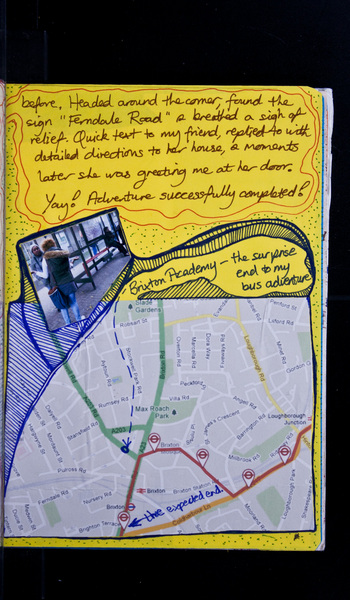 before. Headed around the corner, found the
sign "Ferndale Road" & breathed a sigh of
relief. Quick text to my friend, replied to with
detailed directions to her house, & moments
later she was greeting me at her door.
Yay! Adventure successfully completed!
Brixton Academy – the surprise
end to my
bus adventure
Slade
Gardens
Robsart St
Stockwell Park Rd
Rumsey Rd
Max Roach
Park
Villa Rd
Angell Rd
Loughborough Rd
Loughborough
Junction
St James's Crescent
Barrington
Millbrook Rd
Brixton
Brixton Station Rd
Stansfield Rd
Pulross Rd
Ferndale Rd
Nursery Rd
Brixton
Brixton
Brighton Terrace
Coldharbour Ln
Moorland Rd
Loughborough Park
A203
A203
Lilford Rd
Gordon
the expected end.